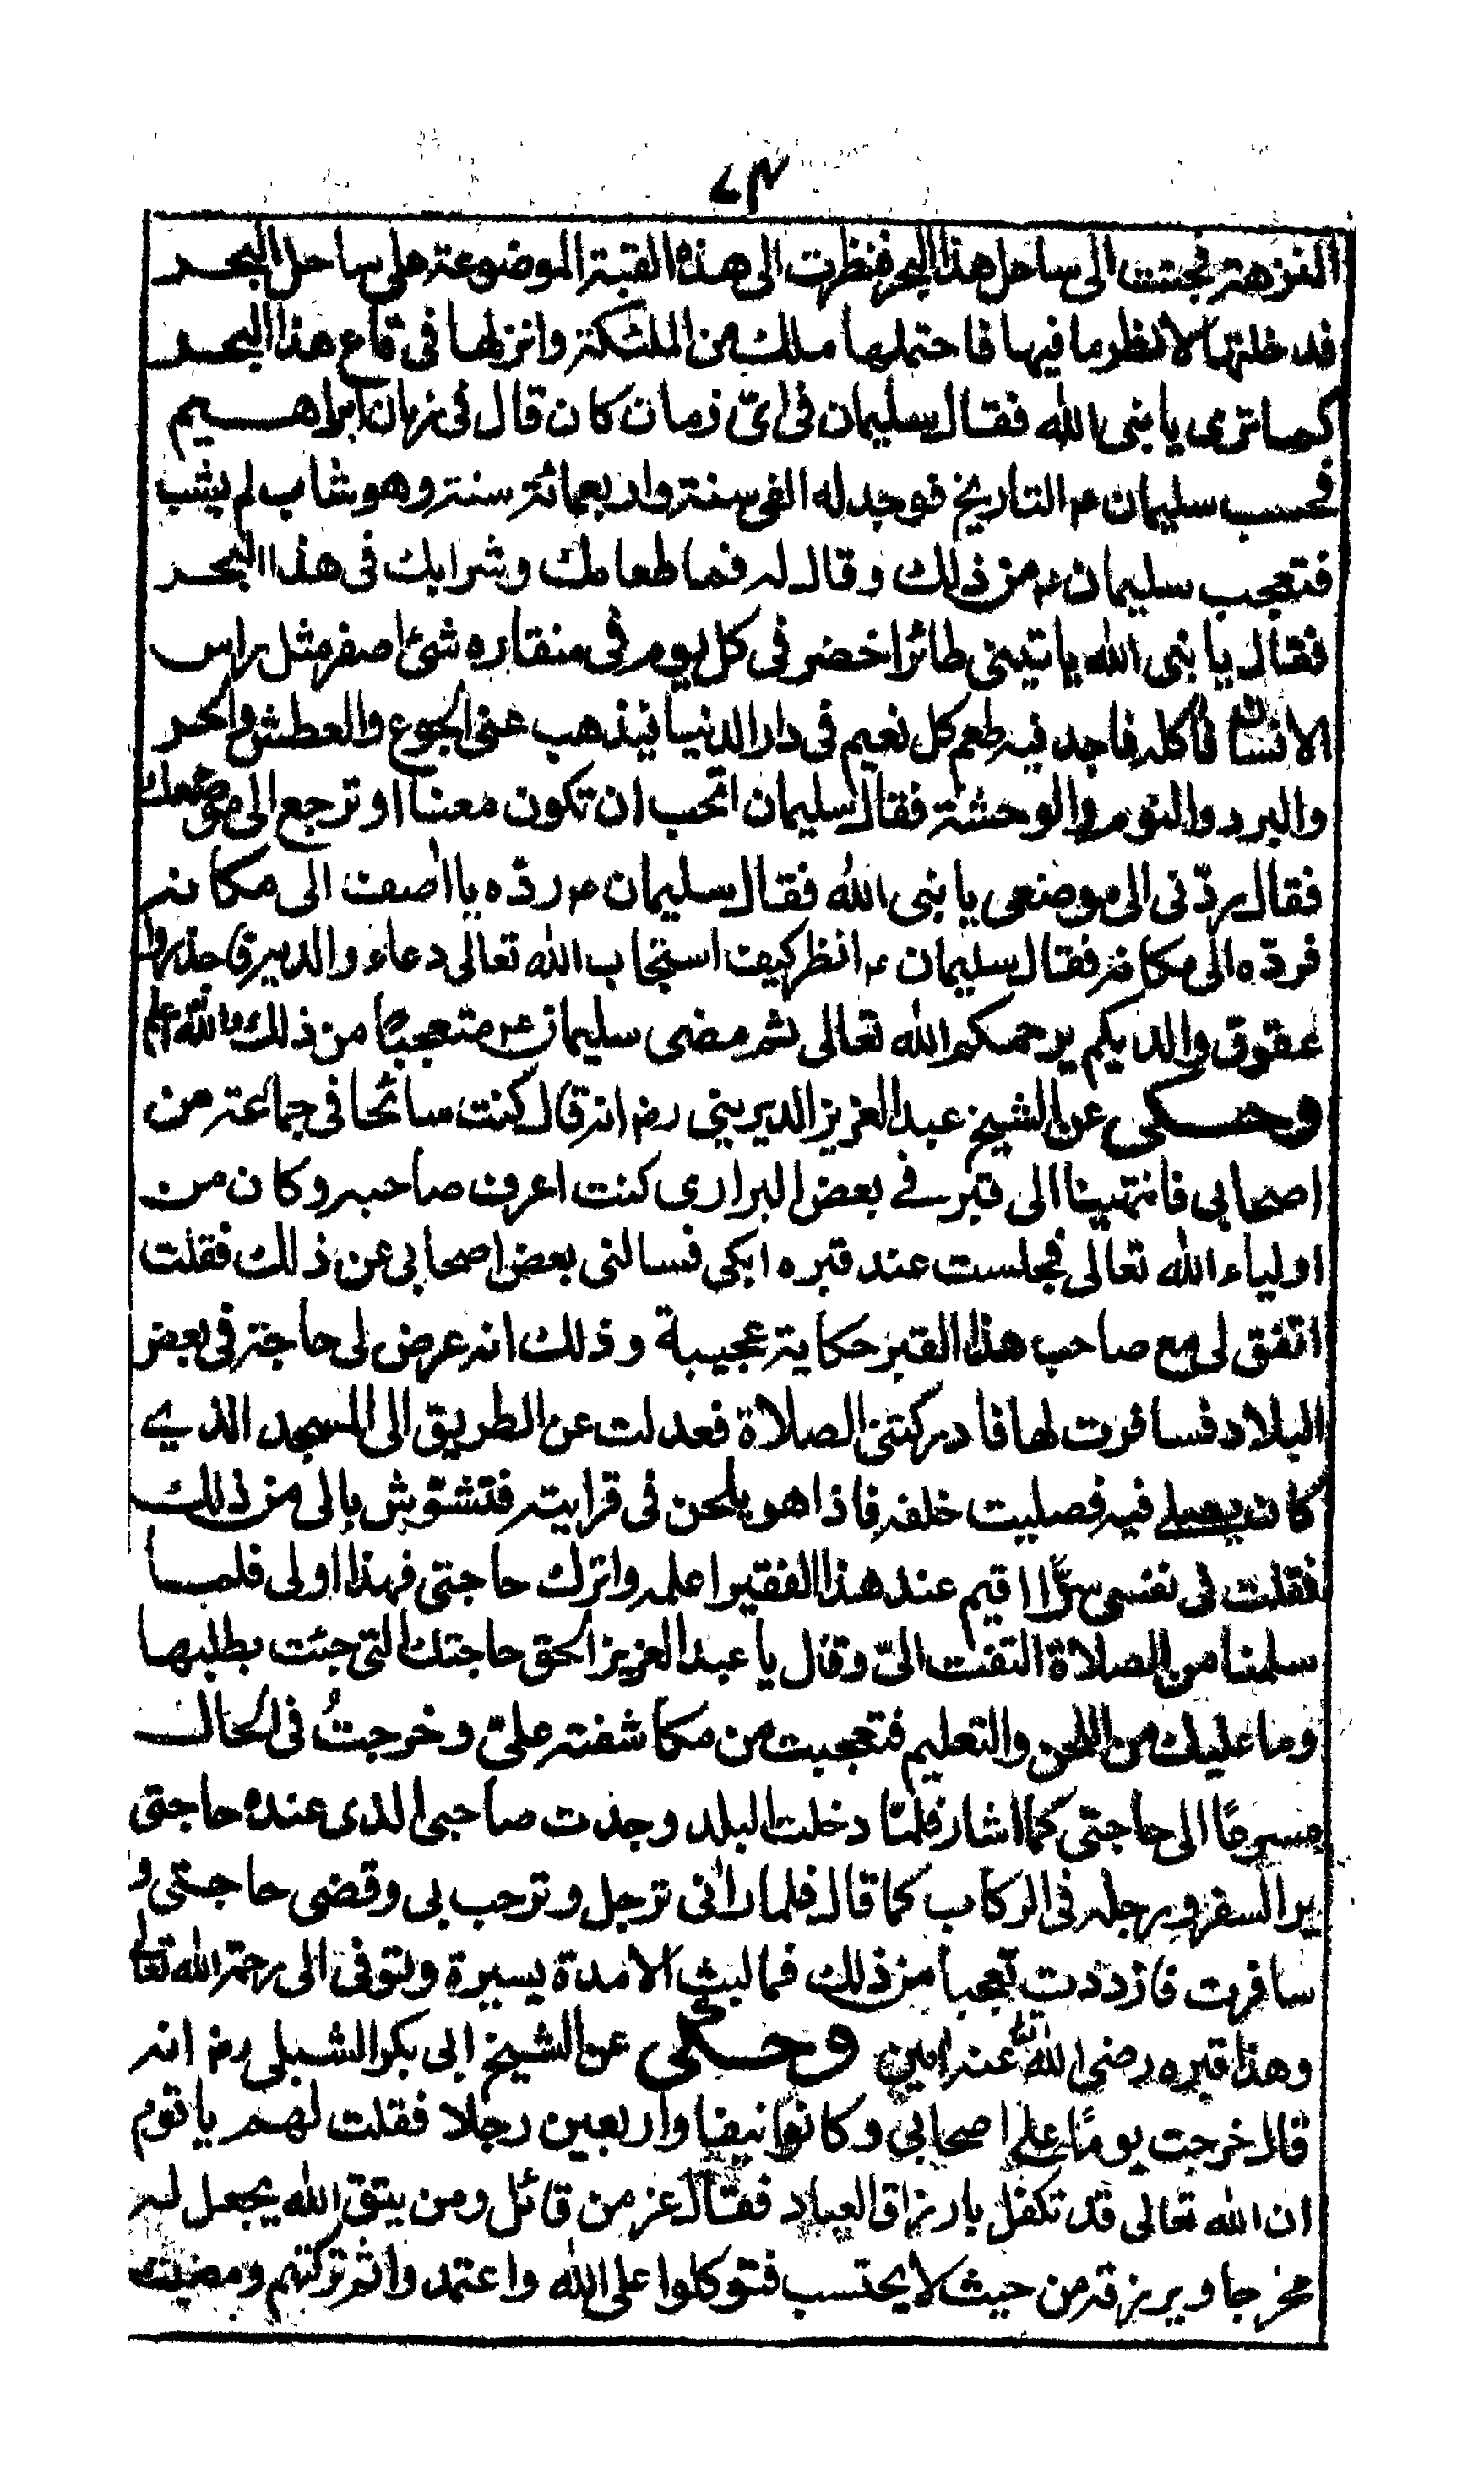 ٧٣
النزهة فجئت الى ساحل هذا البحر فنظرت الى هذه القبة الموضوعة على ساحل البحر
فدخلتها لانظر ما فيها فاحتملها ملك من الملئكة وانزلها فى قاع هذا البحر
كما ترى يا نبى الله فقال سليمان فى اىّ زمان كان قال فى زمان ابراهيم
فحسب سليمان ء م التاريخ فوجد له الفى سنة واربعمائة سنة وهو شاب لم يشب
فتعجب سليمان ء م من ذلك وقال له فما طعامك وشرابك فى هذا البحر
فقال يا نبى الله ياتينى طائرا خضر فى كل يوم فى منقاره شئ اصفر مثل راس
الانسان فآكله فاجد فيه طعم كل نعيم فى دار الدنيا فيذهب عنى الجوع والعطش والحر
والبرد والنوم والوحشة فقال سليمان اتحب ان تكون معنا او ترجع الى موضعك
فقال ردّنى الى موضعى يا نبى الله فقال سليمان ء م ردّه يا اصف الى مكانه
فردّه الى مكانه فقال سليمان ء م انظر كيف استجاب الله تعالى دعاء والديه فاحذروا
عقوق والديكم يرحمكم الله تعالى ثم مضى سليمان ء م متعجبًا من ذلك والله اعلم
وحكى عن الشيخ عبد العزيز الديرينى رضه انه قال كنت سائحا فى جماعة من
اصحابى فانتهينا الى قبر فے بعض البرارى كنت اعرف صاحبه وكان من
اولياء الله تعالى فجلست عند قبره ابكى فسالنى بعض اصحابى عن ذلك فقلت
اتفق لى مع صاحب هذا القبر حكاية عجيبة وذلك انه عرض لى حاجة فى بعض
البلاد فسافرت لها فادركتنى الصلاة فعدلت عن الطريق الى المسجد الذے
كان يصلے فيه فصليت خلفه فاذا هو يلحن فى قرايته فتشوّش بالى من ذلك
فقلت فى نفسى سرًّا اقيم عند هذا الفقير اعلمه واترك حاجتى فهذا اولى فلما
سلمنا من الصلاة التفت الىّ وقال يا عبد العزيز الحق حاجتك التى جئت بطلبها
وما عليك من اللحن والتعليم فتعجبت من مكاشفته علىّ وخرجتُ فى الحال
مسرعًا الى حاجتى كما اشار فلمّا دخلت البلد وجدت صاحبى الذى عنده حاجتى
يرا لسفر ورجله فى الركاب كما قال فلما رانى ترجل وترحب بى وقضى حاجتى و
سافرت فازددت تعجبا من ذلك فما لبث الا مدة يسيرة وتوفى الى رحمة الله تعالى
وهذا قبره رضى الله عنه امين وحكى عن الشيخ ابى بكر الشبلى رضه انه
قال خرجت يومًا على اصحابى وكانوا نيفا واربعين رجلا فقلت لهم يا قوم
ان الله تعالى قد تكفل بارزاق العباد فقال عز من قائل ومن يتق الله يجعل له
مخرجا ويرزقه من حيث لا يحتسب فتوكلوا على الله واعتمدوا ثم تركتهم ومضيت